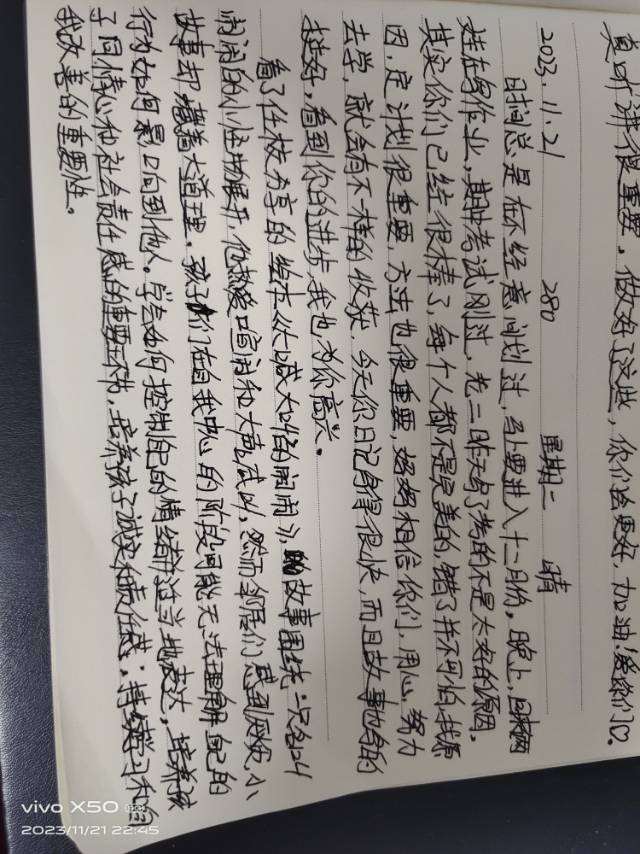 真听讲很重要，做好了这些，你们会更好，加油！爱你们♡。
2023.11.21 280 星期二 晴
时间总是在不经意间划过，马上要进入十二月份。晚上，回来两
娃在写作业，期中考试刚过，老二昨天写了考的不是太好的原因。
其实你们已经很棒了，每个人都不是完美的，错了并不可怕，找原
因，定计划很重要，方法也很重要，妈妈相信你们，用心，努力
去学，就会有不一样的收获，今天你日记写得很快，而且故事也写的
挺好，看到你的进步，我也为你高兴。
看了任枝分享的绘本《大喊大叫的闹闹》，故事围绕一只名叫
闹闹的小怪物展开，他热爱喧闹和大声喊叫，然而邻居们感到厌烦，小
故事却藏着大道理。孩子们在自我中心的阶段可能无法理解自己的
行为如何影响到他人。学会如何控制自己的情绪并适当地表达，培养孩
子同情心和社会责任感的重要环节，培养孩子诚实和责任感；持续学习和自
我改善的重要性。
vivo X50
2023/11/21 22:45